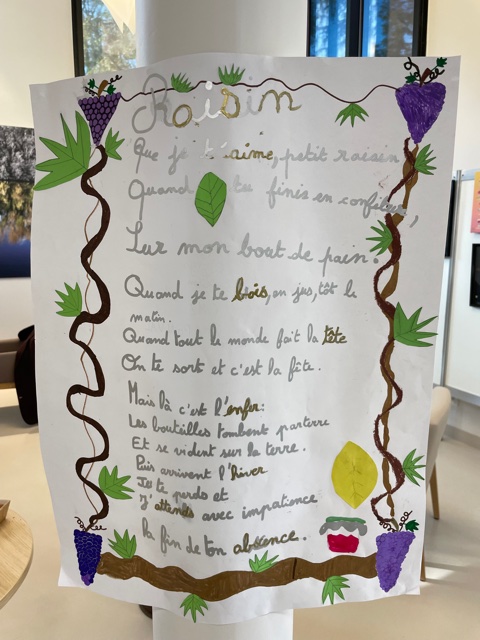 Raisin
Que je t'aime, petit raisin
Quand tu finis en confiture,
Sur mon bout de pain.
Quand je te bois, en jus, tôt le
matin.
Quand tout le monde fait la tête
On te sort et c'est la fête.
Mais là c'est l'enfer:
Les bouteilles tombent par terre
Et se vident sur la terre.
Puis arrivent l'hiver
Je te perds et
J'attends avec impatience
la fin de ton absence.